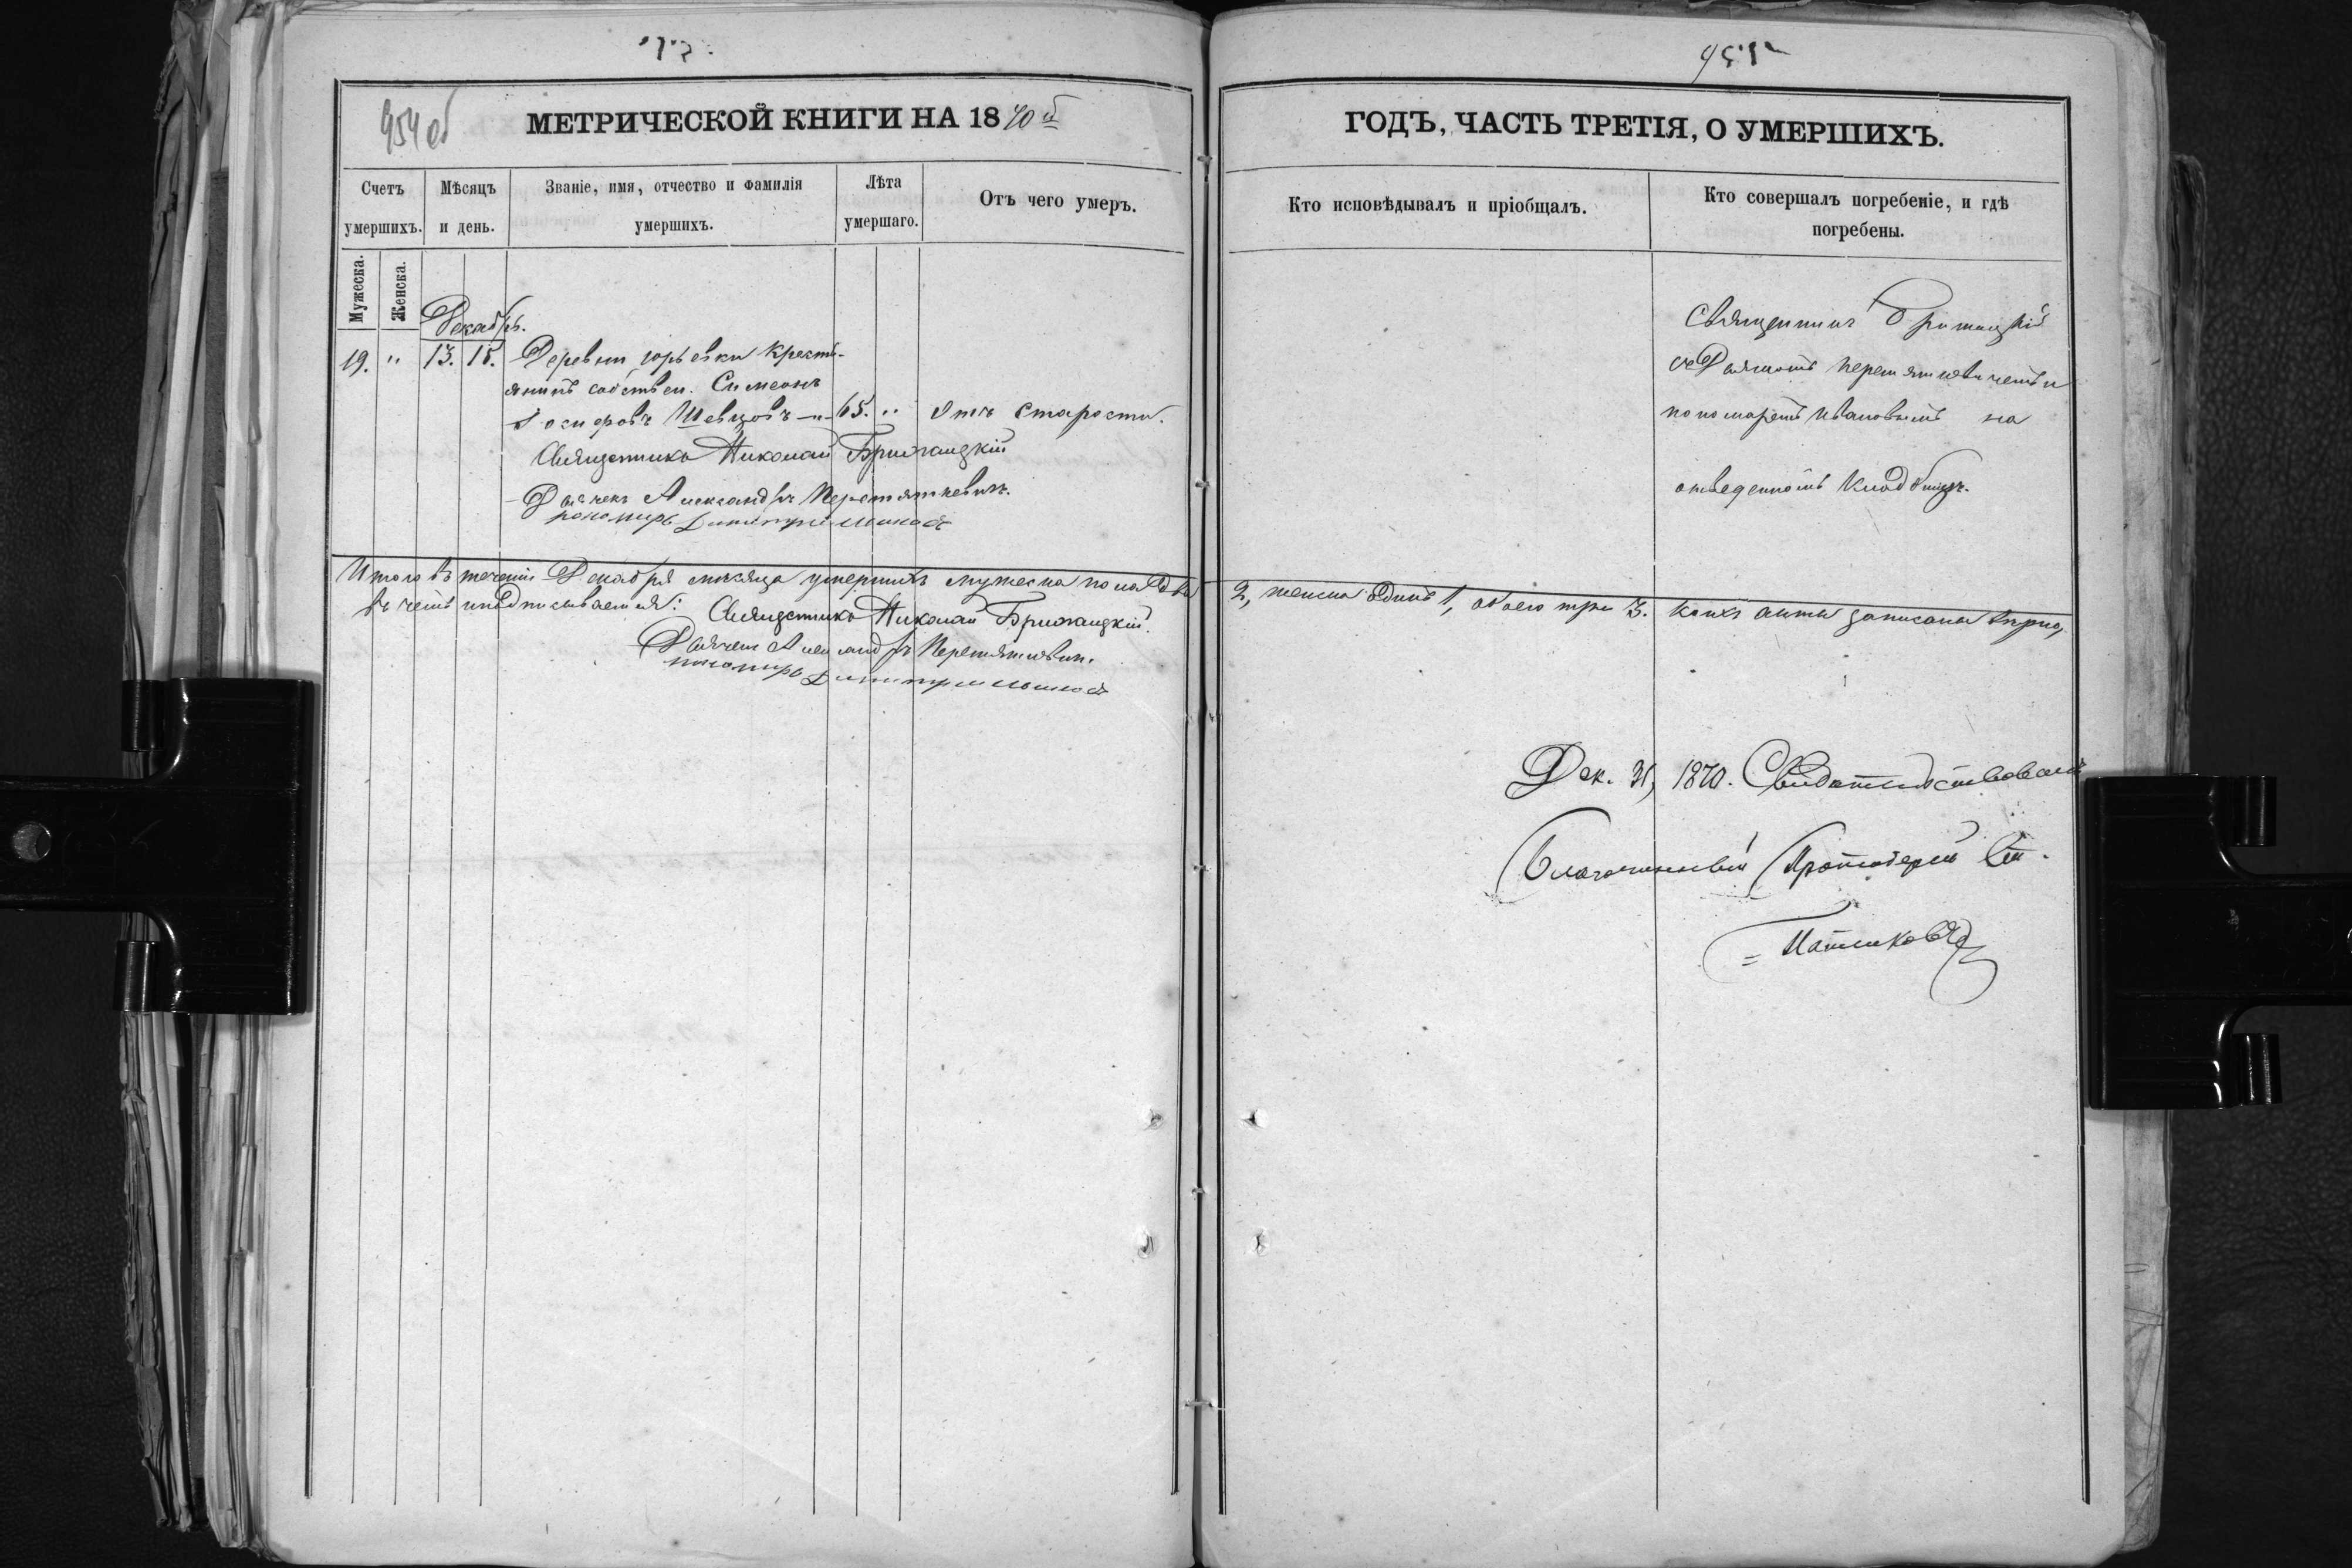 954 об
МЕТРИЧЕСКОЙ КНИГИ НА 1870й
ГОДЪ, ЧАСТЬ ТРЕТІЯ, О УМЕРШИХЪ.
Счетъ умершихъ.
Мѣсяцъ и день.
Званіе, имя, отчество и фамилія умершихъ.
Лѣта умершаго.
Отъ чего умеръ.
Кто исповѣдывалъ и пріобщалъ.
Кто совершалъ погребеніе, и гдѣ погребены.
Мужеска.
Женска.
Декабрь.
19. " 13. 15. Деревни Юрьевки крестья-
янинъ собствен. Симеонъ
Іосифовъ Шевцовъ 65. " Отъ старости.
Священникъ Николай Брижицкій
Дьячекъ Александръ Перетяткевичъ.
пономарь Димитрій
Священникъ
съ Дьячкомъ Перетяткевичемъ и
пономаремъ Ивановымъ на
отведенномъ кладбищѣ.
Итого въ теченіи Декабря мѣсяца умершихъ мужеска пола два 2, женска одинъ 1, обоего три 3. коихъ акты записаны
въ чемъ и подписываемся: Священникъ Николай Брижицкій.
Дьячекъ Александръ Перетяткевичъ.
пономарь Димитрій
Дек. 31, 1870. Свидетельствовалъ
Благочинный Протоіерей Ст.